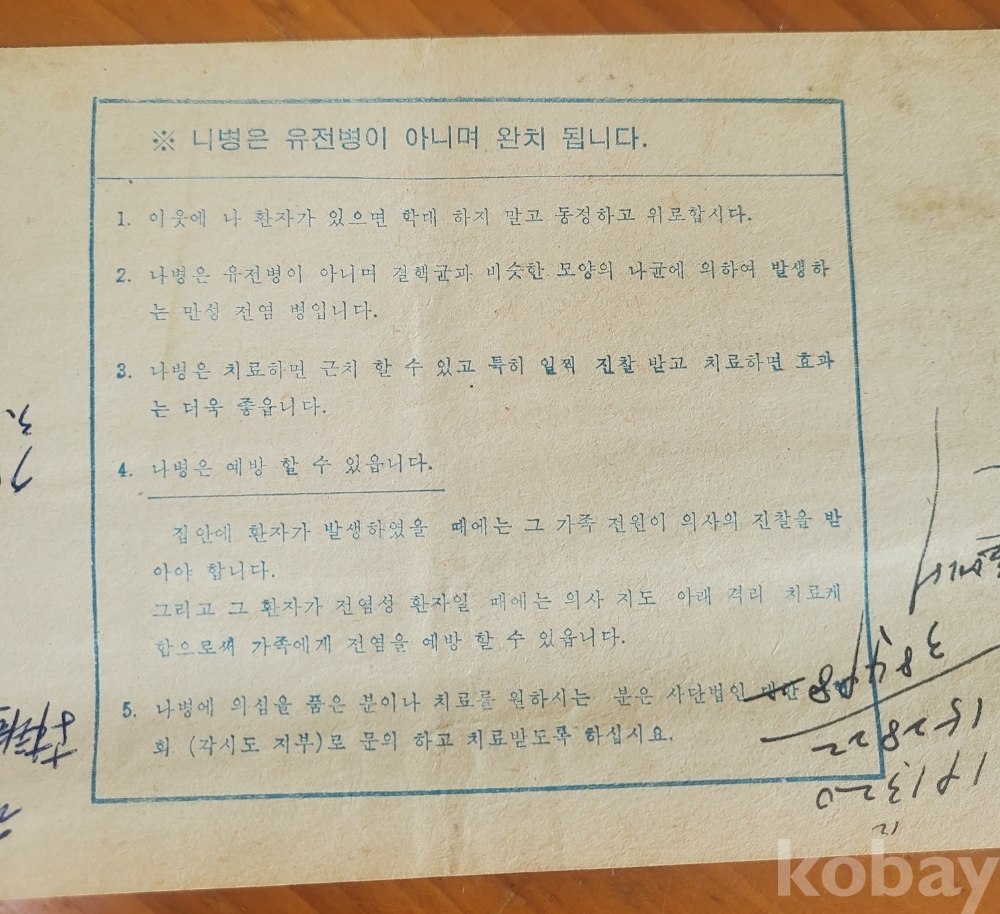 ※ 니병은 유전병이 아니며 완치 됩니다.
1. 이웃에 나 환자가 있으면 학대 하지 말고 동정하고 위로합시다.
2. 나병은 유전병이 아니며 결핵균과 비슷한 모양의 나균에 의하여 발생하
는 만성 전염 병입니다.
3. 나병은 치료하면 근치 할 수 있고 특히 일찍 진찰 받고 치료하면 효과
는 더욱 좋읍니다.
4. 나병은 예방 할 수 있읍니다.
집안에 환자가 발생하였을 때에는 그 가족 전원이 의사의 진찰을 받
아야 합니다.
그리고 그 환자가 전염성 환자일 때에는 의사 지도 아래 격리 치료케
함으로써 가족에게 전염을 예방 할 수 있읍니다.
5. 나병에 의심을 품은 분이나 치료를 원하시는 분은 사단법인
회 (각시도 지부)로 문의 하고 치료받도록 하십시요.
kobay